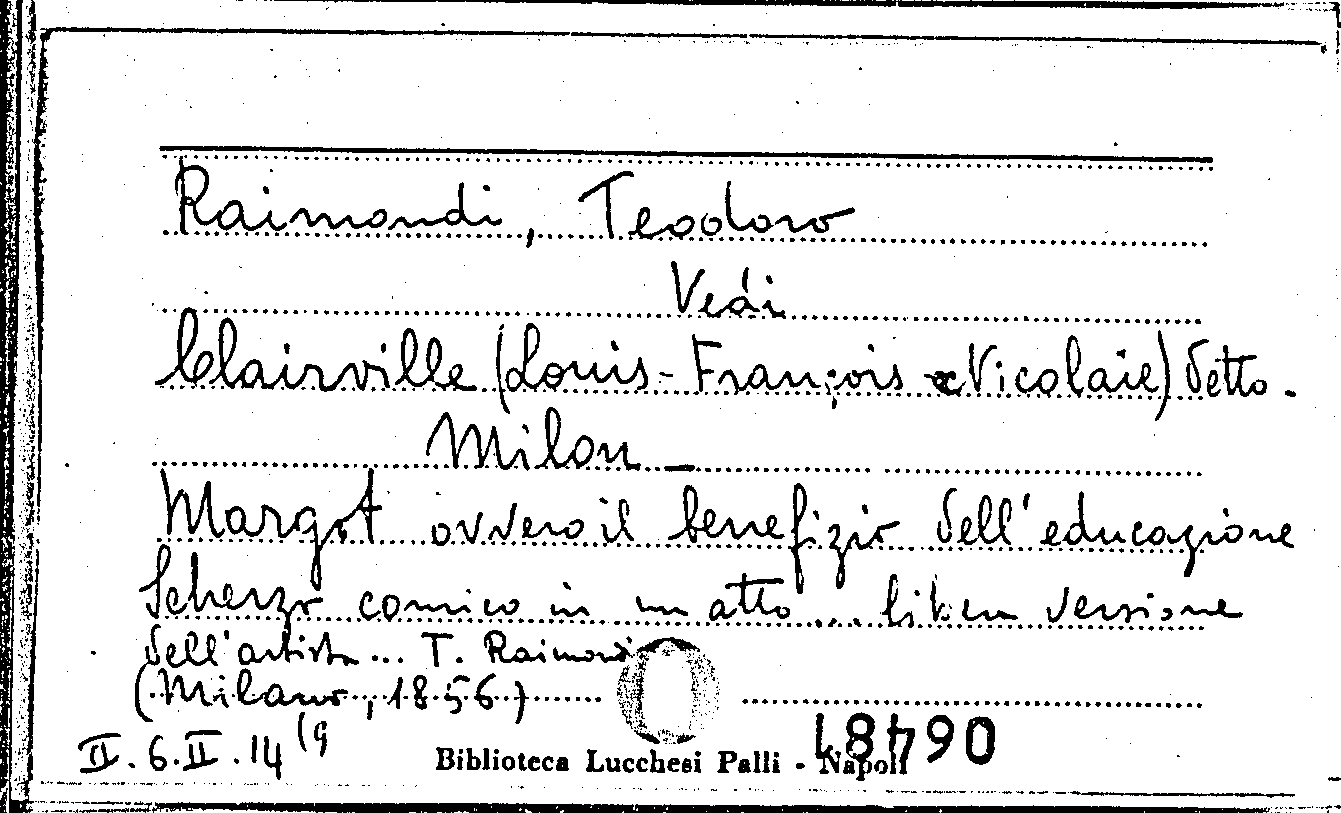 Raimondi, Teodoro
Vedi
Clairville (Louis-François Nicolaie) detto
Milon
Margot ovvero il benefizio dell'educazione
Scherzo comico in un atto... libera versione
dell'artista... T. Raimondi
(Milano, 1856)
II. 6. II. 14 (9
Biblioteca Lucchesi Palli - Napoli